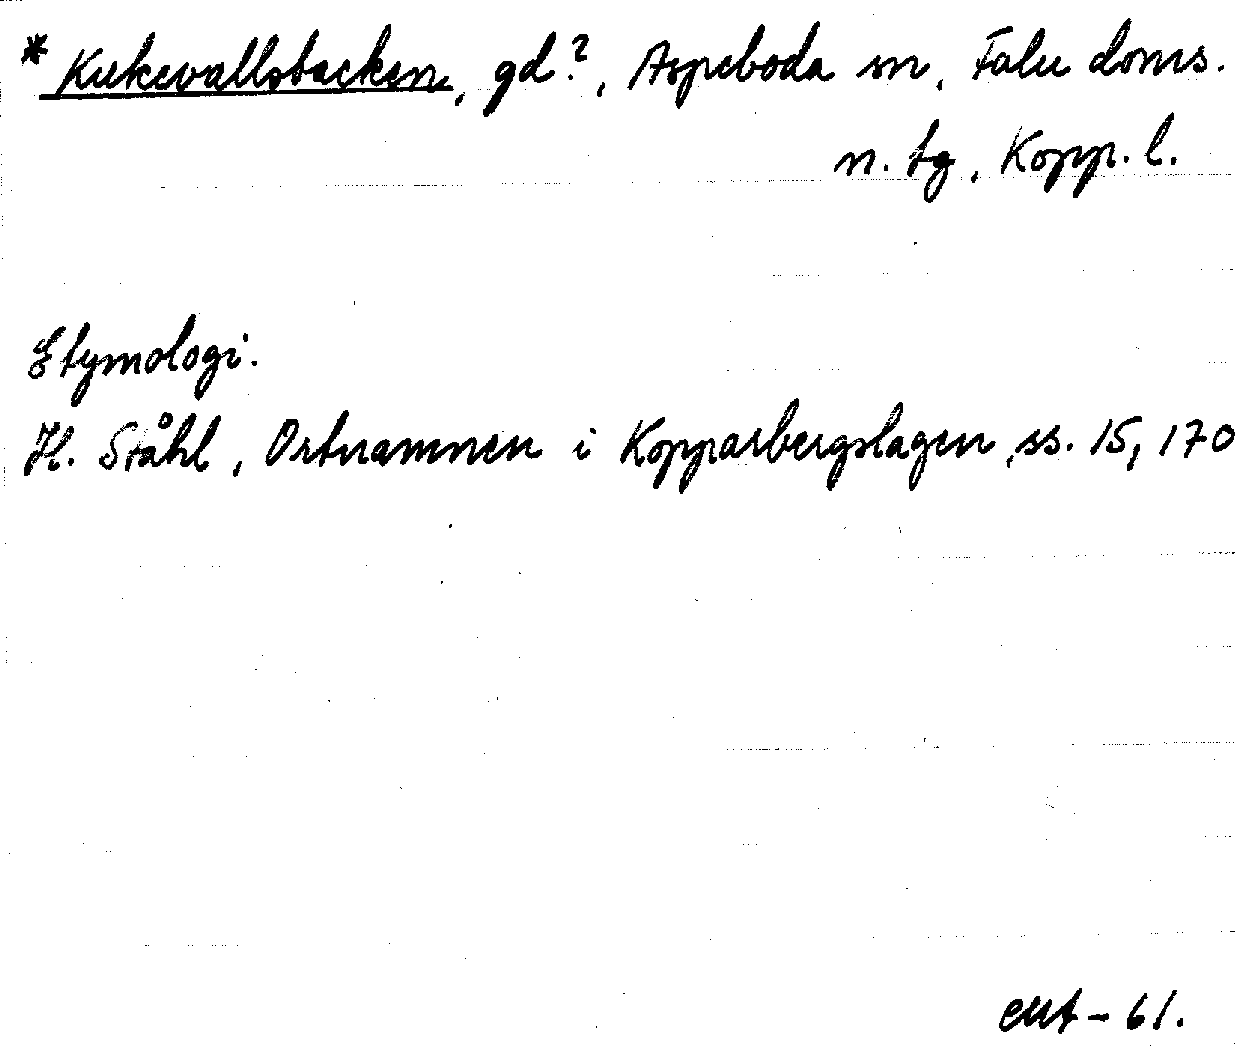 * Kukevallsbacken, gd?, Aspeboda sn, Falu doms.
n. tg, Kopp. l.
Etymologi.
H. Ståhl, Ortnamnen i Kopparbergslagen, ss. 15, 170